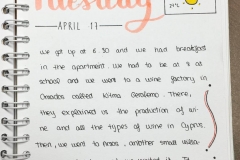 Tuesday
APRIL 17
21°C
We got up at 6:30 and we had breakfast
in the apartment. We had to be at 8 at
school and we went to a wine factory in
Omodos called Ktima Gerolemo. There,
they explained us the production of wi-
ne and all the types of wine in Cyprus.
Then, we went to Anois, another small villa-